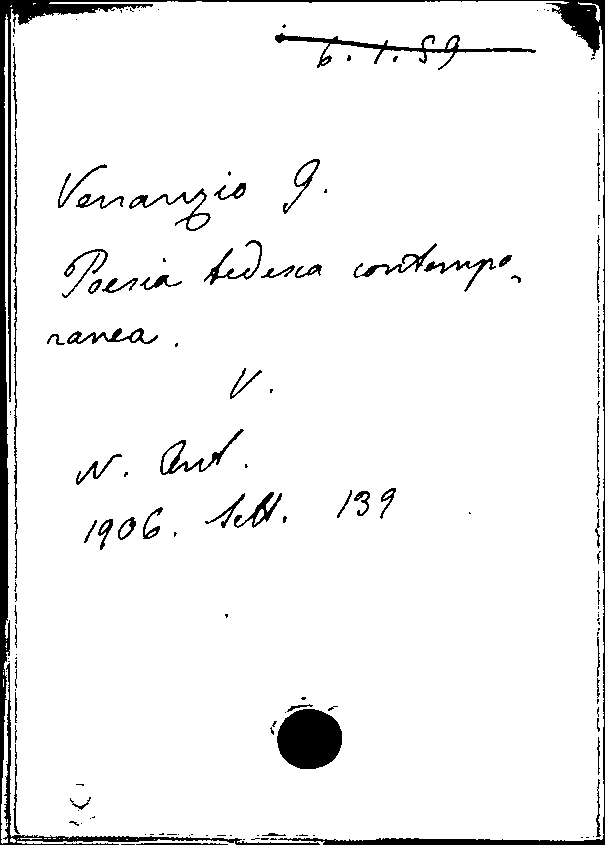 6.1.59
Venanzio G.
Poesia tedesca contempo-
ranea.
V.
N. Ant.
1906. Sett. 139